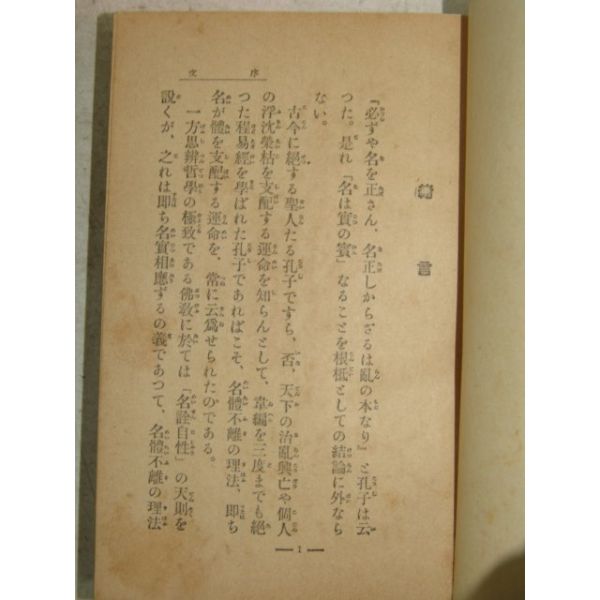 序文
緒言
『必ずや名を正さん、名正しからざるは亂の本なり』と孔子は云
つた。是れ『名は實の賓』なることを根柢としての結論に外なら
ない。
古今に絕する聖人たる孔子ですら、否、天下の治亂興亡や個人
の浮沈榮枯を支配する運命を知らんとして、韋編を三度までも絕
つた程易經を學ばれた孔子であればこそ、名體不離の理法、即ち
名が體を支配する運命を、常に云爲せられたのである。
一方思辨哲學の極致である佛敎に於ては『名詮自性』の天則を
說くが、之れは即ち名實相應ずるの義であつて、名體不離の理法
— 1 —